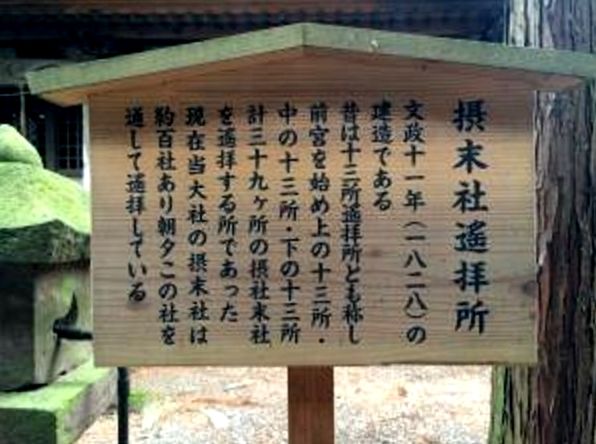 摂末社遙拝所
文政十一年(一八二八)の
建造である
昔は十三所遥拝所とも称し
前宮を始め上の十三所・
中の十三所・下の十三所
計三十九ヶ所の摂社末社
を遥拝する所であった
現在当大社の摂末社は
約百社あり朝夕この社を
通して遥拝している